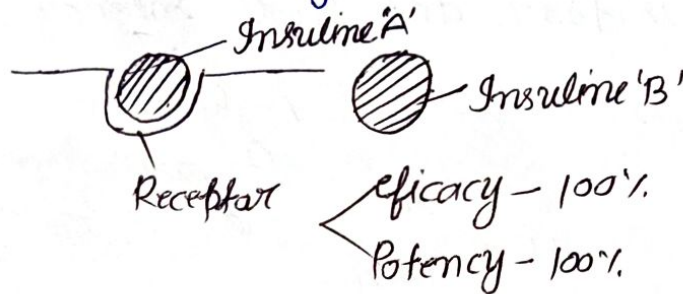 Insuline 'A'
Insuline 'B'
Receptor
eficacy - 100%.
Potency - 100%.